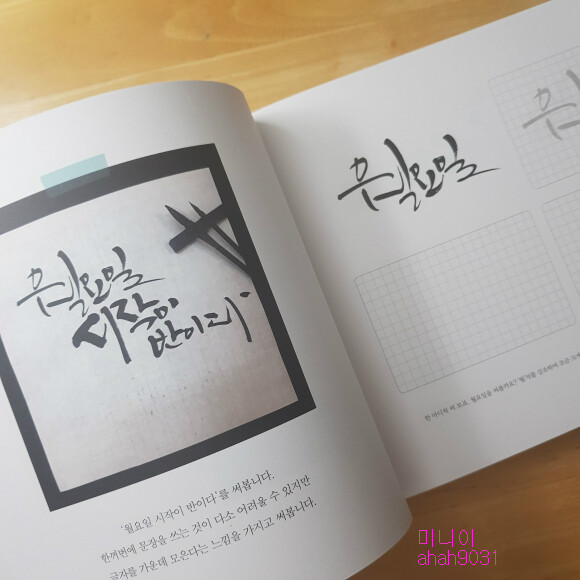 월요일
시작이
반이다
'월요일 시작이 반이다'를 써봅니다.
한꺼번에 문장을 쓰는 것이 다소 어려울 수 있지만
글자를 가운데 모은다는 느낌을 가지고 써봅니다.
월요일
월
한 마디씩 써 보죠. 월요일을 써볼까요?
미니이
ahah9031